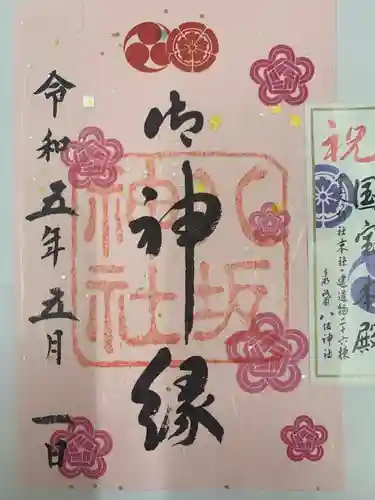 祝 国宝本殿
摂社末社・建造物二十六棟
京都祇園 八坂神社
御神縁
八坂神社
令和五年五月一日